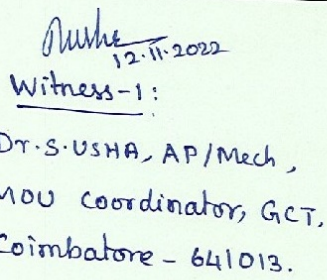 12.11.2022
Witness-1:
Dr.S.USHA, AP/Mech,
MOU Coordinator, GCT,
Coimbatore - 641013.